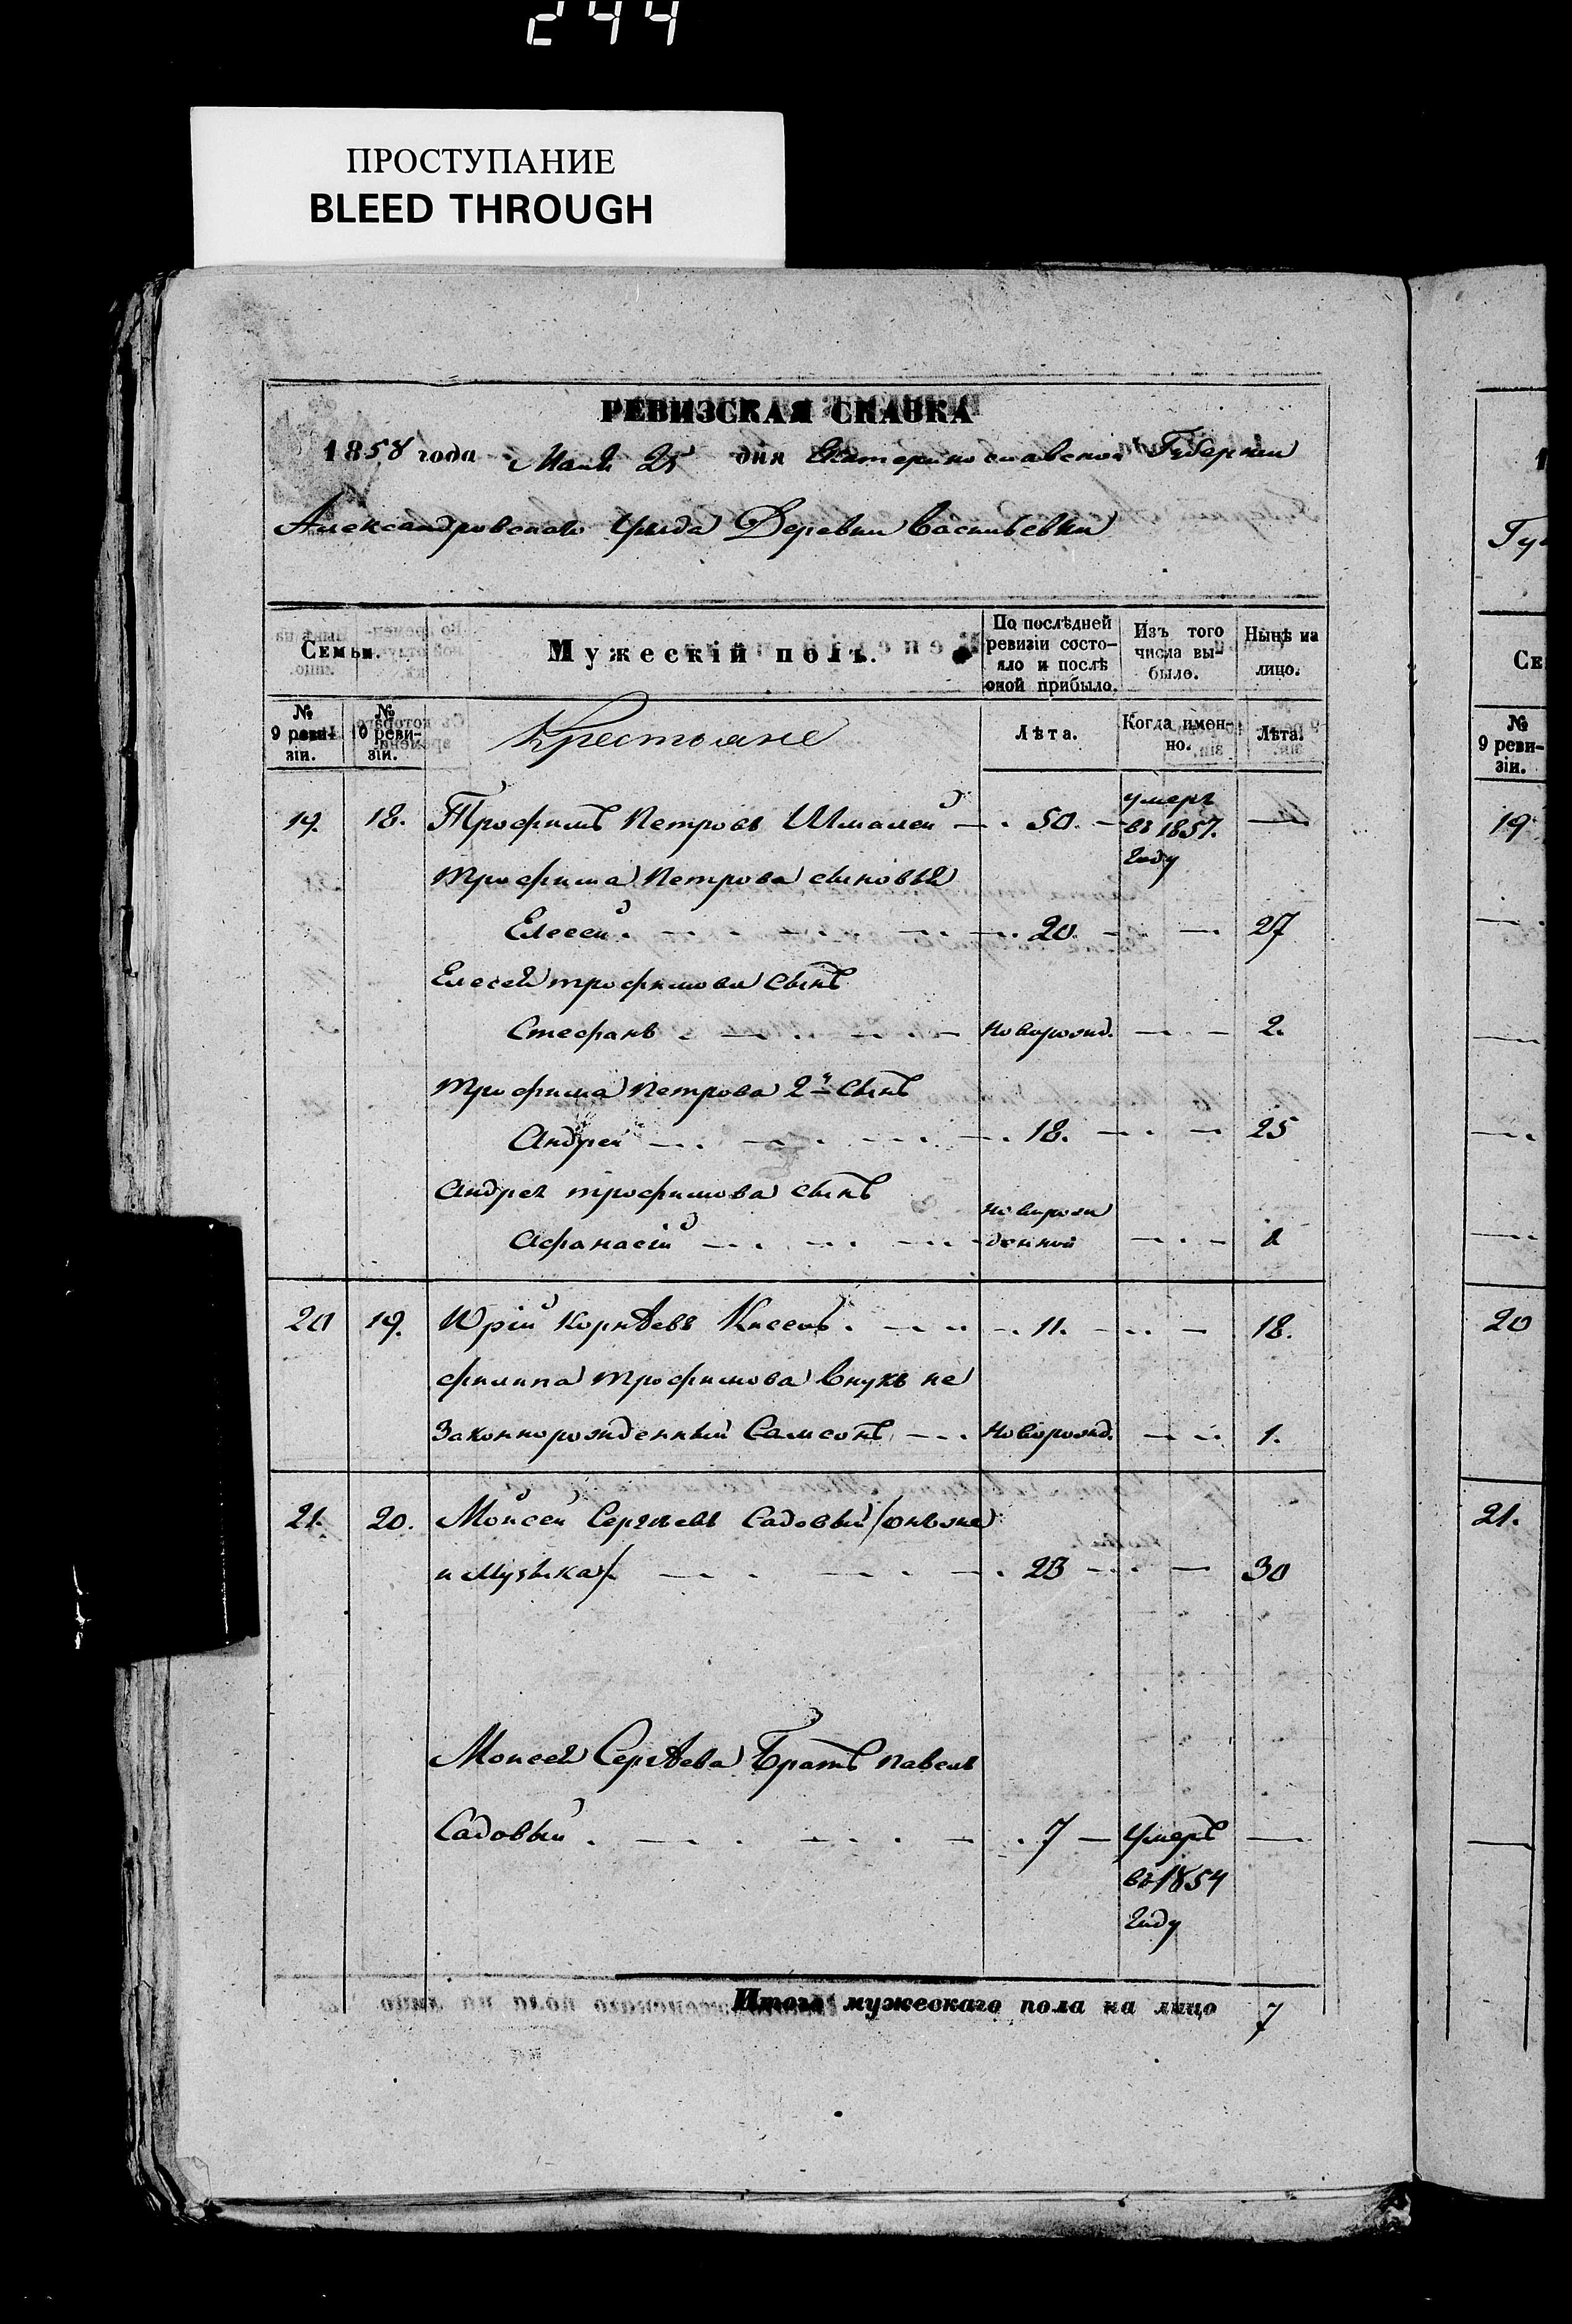 244
ПРОСТУПАНИЕ
BLEED THROUGH
РЕВИЗСКАЯ СКАЗКА
1858 года Маія 25 дня Екатеринославской Губерніи
Александровскаго Уезда Деревни Васильевки
Семьи.
Мужескій полъ.
По послѣдней ревизіи состояло и послѣ оной прибыло.
Изъ того числа выбыло.
Нынѣ на лицо.
№ 9 ревизіи.
№ 10 ревизіи.
Крестьяне
Лѣта.
Когда именно.
Лѣта.
19. 18. Трофимъ Петровъ Шмалей 50. умеръ въ 1857. году
Трофима Петрова сыновья
Елесей 20. 27
Елесея Трофимова сынъ
Стефанъ новорожд. 2.
Трофима Петрова 2й сынъ
Андрей 18. 25
Андрея Трофимова сынъ
Афанасій новорожденной 1
20 19. Юрій Корнѣевъ Кисель 11. 18.
Филипа Трофимова внукъ не
законнорожденный Самсонъ новорожд. 1.
21. 20. Моисей Сергѣевъ Садовый /онъ же
и Музыка/ 23 30
Моисея Сергѣева Братъ Павелъ
Садовый 7 Умеръ
въ 1854
году
Итого мужескаго пола на лицо 7
Гу
Се
№
9 реви-
зіи.
19
20
21.